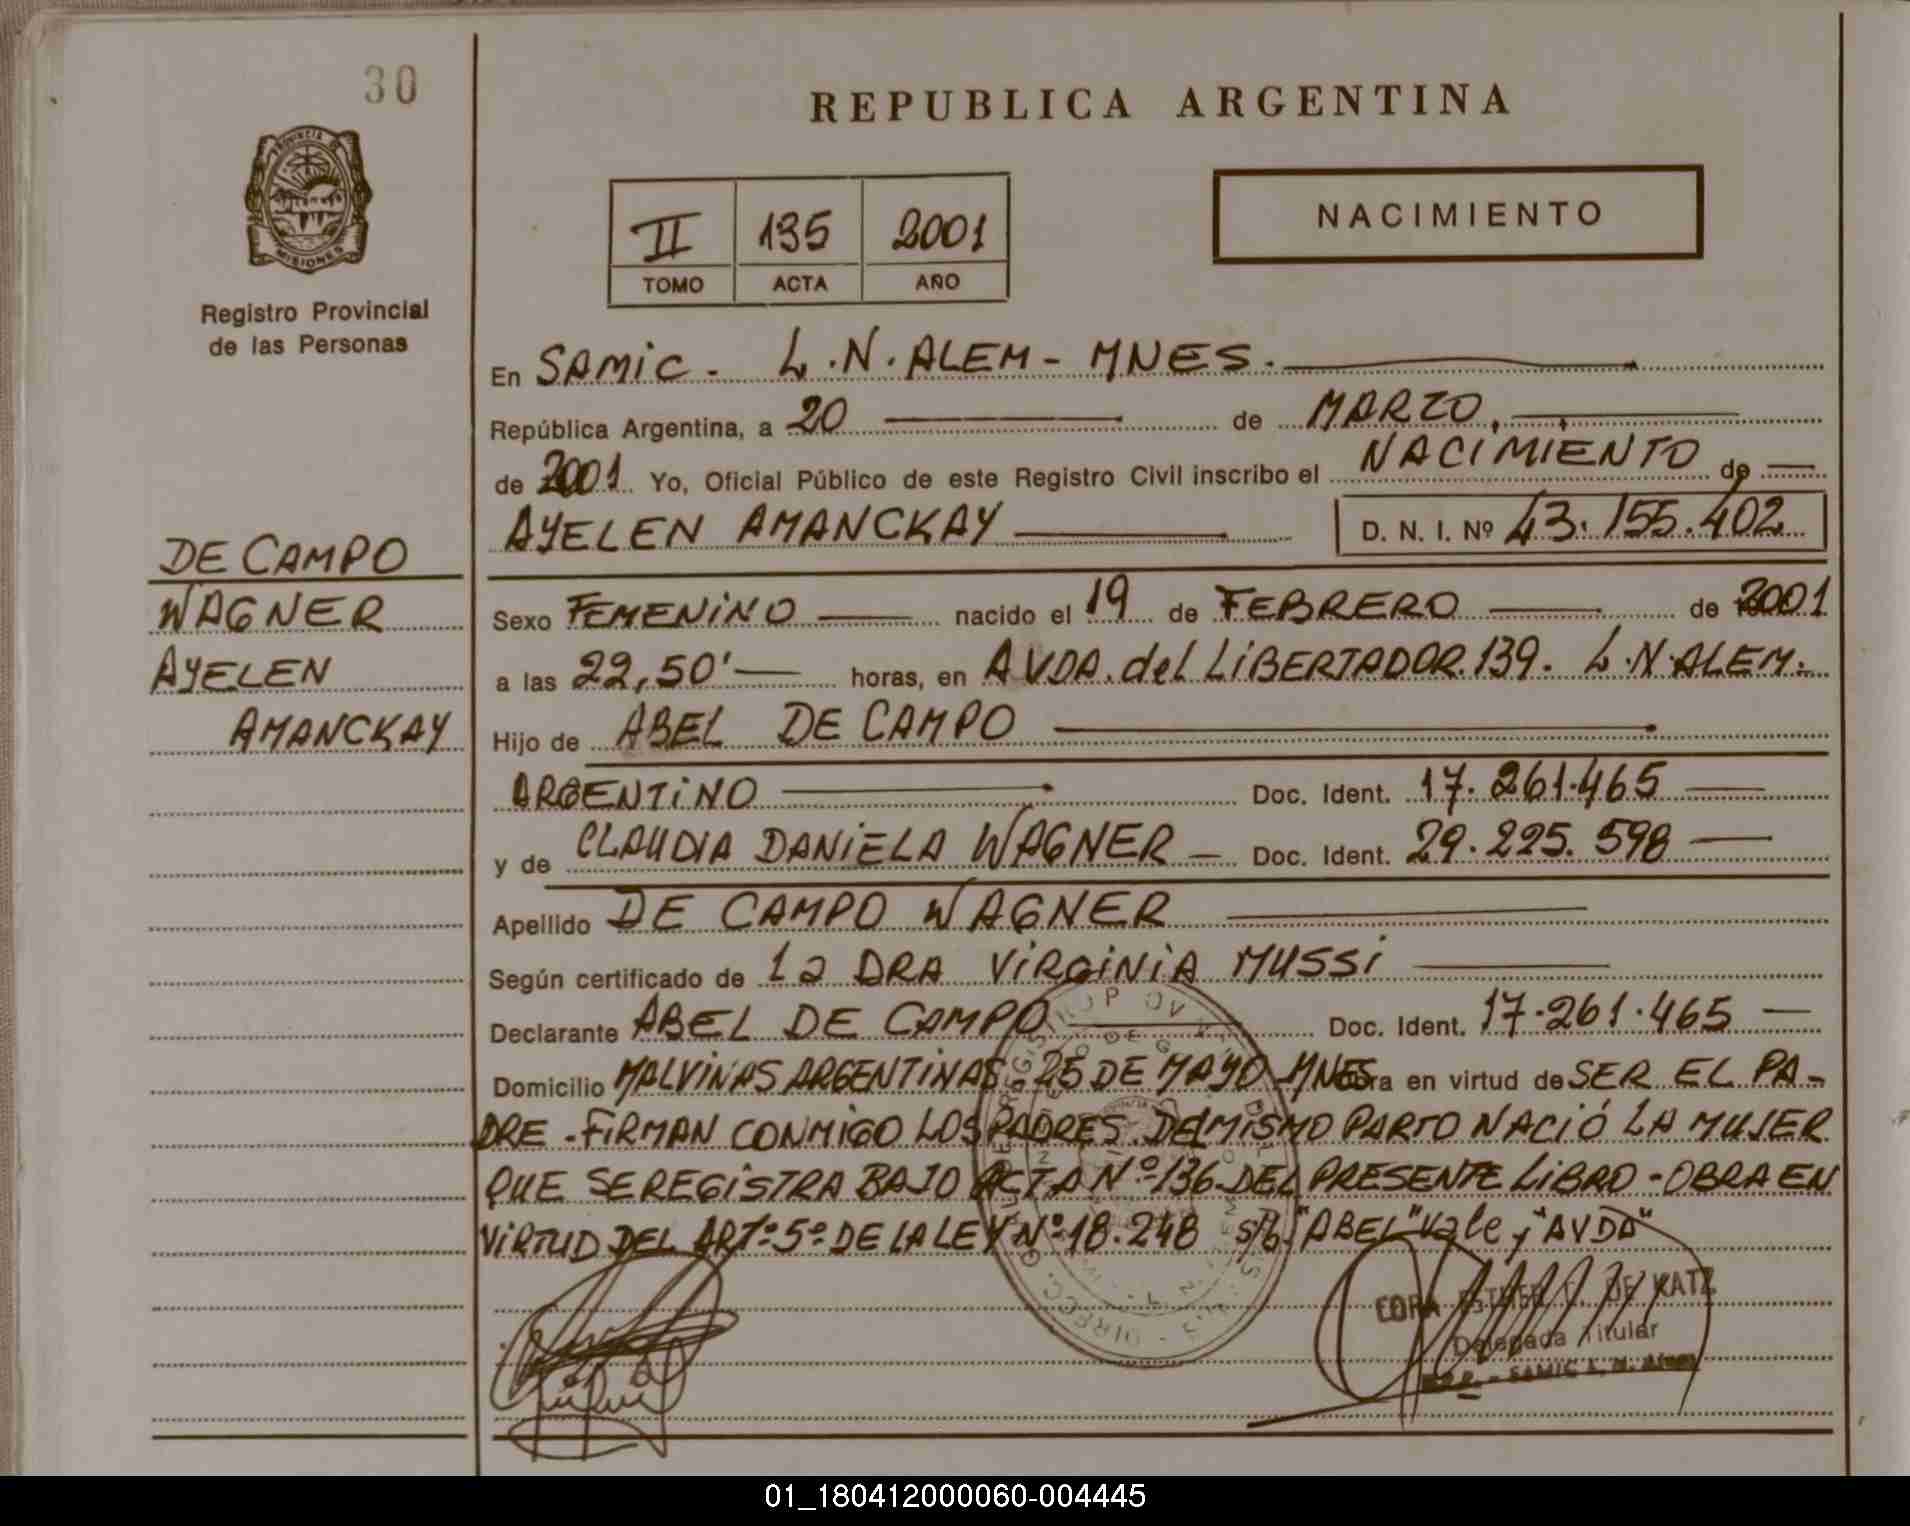 30
REPUBLICA ARGENTINA
PROVINCIA D
MISIONES
Registro Provincial
de las Personas
II 135 2001
TOMO ACTA AÑO
NACIMIENTO
En SAMIC. L.N.ALEM - MNES.
República Argentina, a 20 de MARZO.
de 2001 Yo, Oficial Público de este Registro Civil inscribo el NACIMIENTO de
AYELEN AMANCKAY D. N. I. Nº 43.155.402
DE CAMPO
WAGNER
AYELEN
AMANCKAY
Sexo FEMENINO nacido el 19 de FEBRERO de 2001
a las 22,50' horas, en AVDA. del LIBERTADOR.139. L.N.ALEM.
Hijo de ABEL DE CAMPO
ARGENTINO Doc. Ident. 17.261.465
y de CLAUDIA DANIELA WAGNER Doc. Ident. 29.225.598
Apellido DE CAMPO WAGNER
Según certificado de la DRA VIRGINIA MUSSI
Declarante ABEL DE CAMPO Doc. Ident. 17.261.465
Domicilio MALVINAS ARGENTINAS. 25 DE MAYO MNES obra en virtud de SER EL PA-
DRE - FIRMAN CONMIGO LOS PADRES. DEL MISMO PARTO NACIÓ LA MUJER
QUE SE REGISTRA BAJO ACTA Nº 136. DEL PRESENTE LIBRO - OBRA EN
VIRTUD DEL ARTº 5º DE LA LEY Nº 18.248 s/b. "ABEL" Vale; "AVDA"
CORA ESTHER DE KATZ
Delegada Titular
SAMIC L. N. Alem
01_180412000060-004445